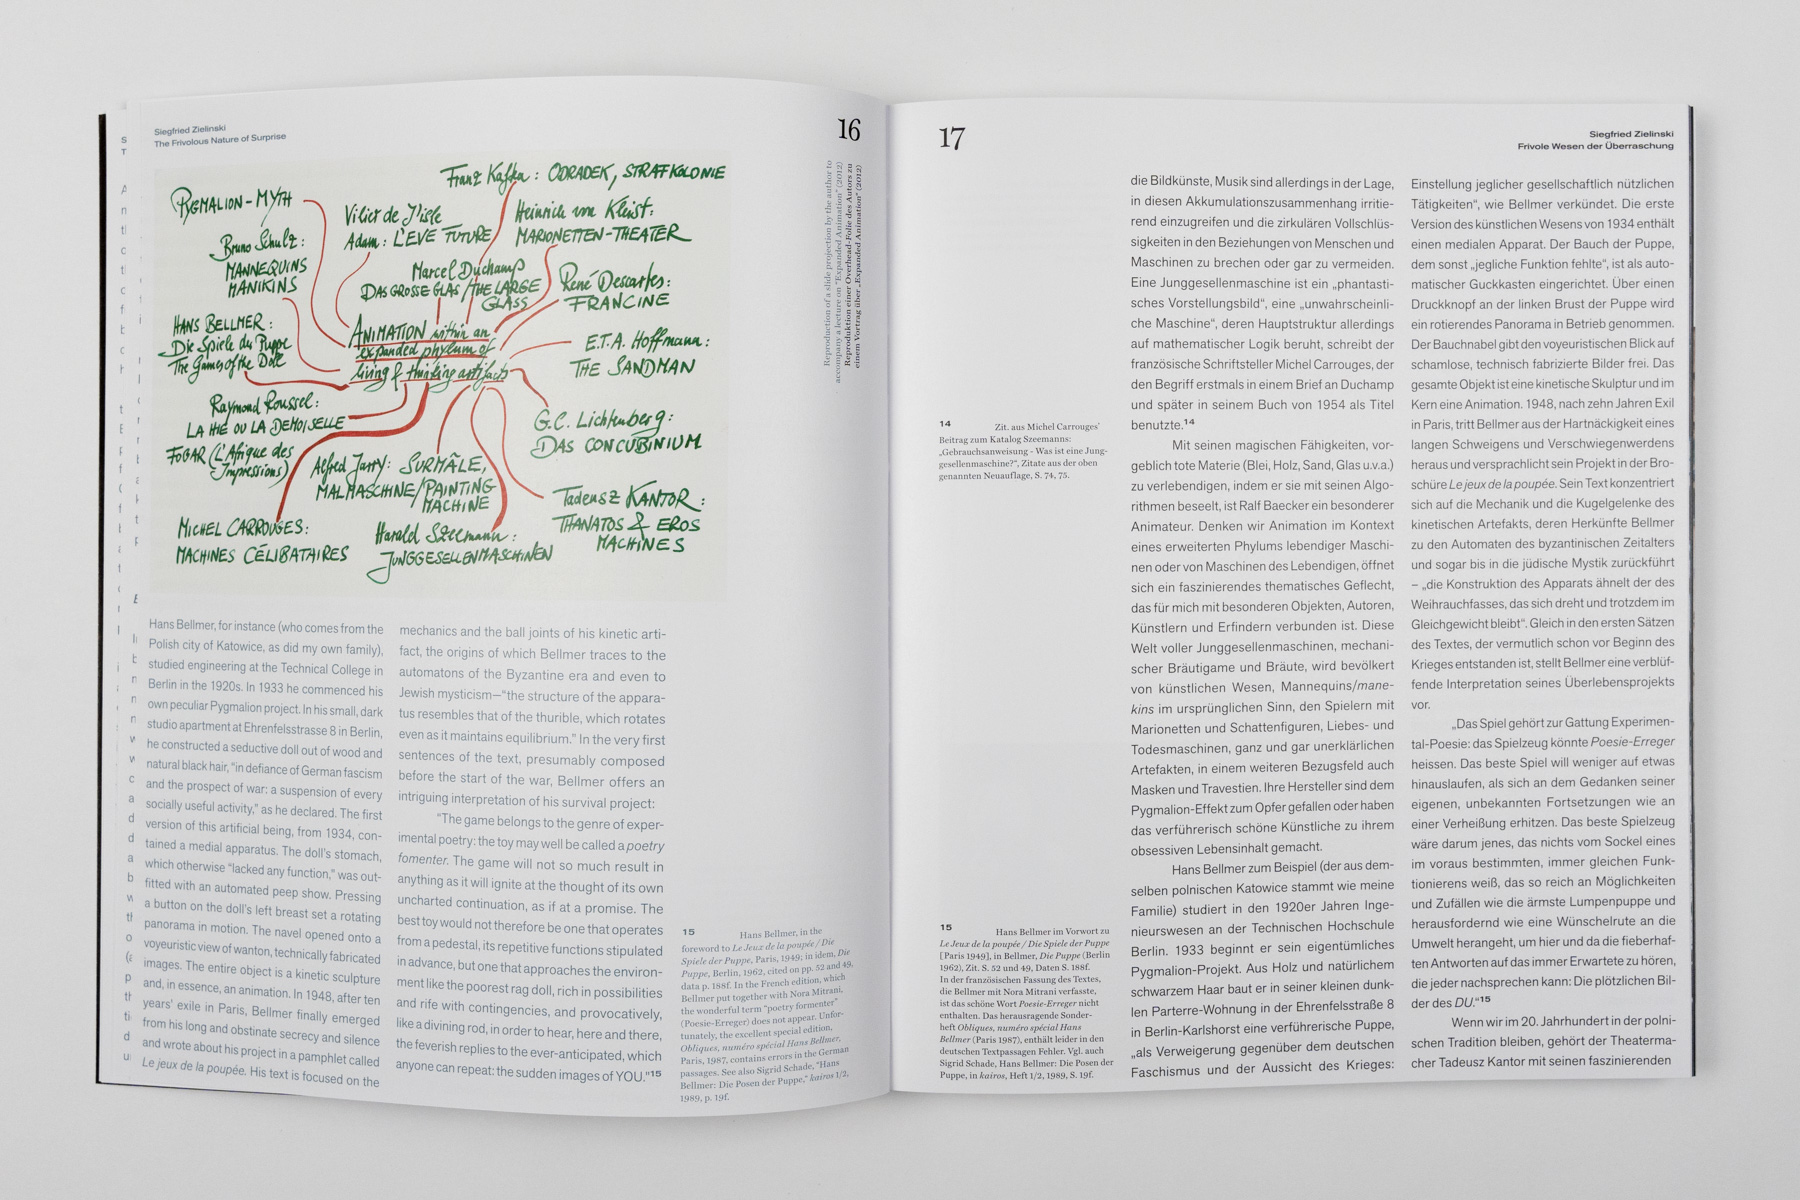 Siegfried Zielinski
The Frivolous Nature of Surprise
16
Reproduction of a slide projection by the author to
accompany a lecture on "Expanded Animation" (2012)
Reproduktion einer Overhead-Folie des Autors zu
einem Vortrag über „Expanded Animation" (2012)
PYGMALION-MYTH
Franz Kafka: ODRADEK, STRAFKOLONIE
Vilier de l'isle
Adam: L'EVE FUTURE
Heinrich von Kleist:
MARIONETTEN-THEATER
Bruno Schulz:
MANNEQUINS
MANIKINS
Marcel Duchamp
DAS GROSSE GLAS/THE LARGE
GLASS
René Descartes:
FRANCINE
HANS BELLMER:
Die Spiele der Puppe
The Games of the Doll
ANIMATION within an
expanded phylum of
living & thinking artifacts
E.T.A. Hoffmann:
THE SANDMAN
Raymond Roussel:
LA HIE OU LA DEMOISELLE
FOGAR (L'Afrique des
Impressions)
G.C. Lichtenberg:
DAS CONCUBINIUM
Alfred Jarry: SURMÂLE,
MALMASCHINE/PAINTING
MACHINE
Tadeusz KANTOR:
THANATOS & EROS
MACHINES
MICHEL CARROUGES:
MACHINES CÉLIBATAIRES
Harald Szeemann:
JUNGGESELLENMASCHINEN
Hans Bellmer, for instance (who comes from the
Polish city of Katowice, as did my own family),
studied engineering at the Technical College in
Berlin in the 1920s. In 1933 he commenced his
own peculiar Pygmalion project. In his small, dark
studio apartment at Ehrenfelsstrasse 8 in Berlin,
he constructed a seductive doll out of wood and
natural black hair, "in defiance of German fascism
and the prospect of war: a suspension of every
socially useful activity," as he declared. The first
version of this artificial being, from 1934, con-
tained a medial apparatus. The doll's stomach,
which otherwise "lacked any function," was out-
fitted with an automated peep show. Pressing
a button on the doll's left breast set a rotating
panorama in motion. The navel opened onto a
voyeuristic view of wanton, technically fabricated
images. The entire object is a kinetic sculpture
and, in essence, an animation. In 1948, after ten
years' exile in Paris, Bellmer finally emerged
from his long and obstinate secrecy and silence
and wrote about his project in a pamphlet called
Le jeux de la poupée. His text is focused on the
mechanics and the ball joints of his kinetic arti-
fact, the origins of which Bellmer traces to the
automatons of the Byzantine era and even to
Jewish mysticism—"the structure of the appara-
tus resembles that of the thurible, which rotates
even as it maintains equilibrium." In the very first
sentences of the text, presumably composed
before the start of the war, Bellmer offers an
intriguing interpretation of his survival project:
"The game belongs to the genre of exper-
imental poetry: the toy may well be called a poetry
fomenter. The game will not so much result in
anything as it will ignite at the thought of its own
uncharted continuation, as if at a promise. The
best toy would not therefore be one that operates
from a pedestal, its repetitive functions stipulated
in advance, but one that approaches the environ-
ment like the poorest rag doll, rich in possibilities
and rife with contingencies, and provocatively,
like a divining rod, in order to hear, here and there,
the feverish replies to the ever-anticipated, which
anyone can repeat: the sudden images of YOU."15
15 Hans Bellmer, in the
foreword to Le Jeux de la poupée / Die
Spiele der Puppe, Paris, 1949; in idem, Die
Puppe, Berlin, 1962, cited on pp. 52 and 49,
data p. 188f. In the French edition, which
Bellmer put together with Nora Mitrani,
the wonderful term "poetry fomenter"
(Poesie-Erreger) does not appear. Unfor-
tunately, the excellent special edition,
Obliques, numéro spécial Hans Bellmer,
Paris, 1987, contains errors in the German
passages. See also Sigrid Schade, "Hans
Bellmer: Die Posen der Puppe," kairos 1/2,
1989, p. 19f.
17
Siegfried Zielinski
Frivole Wesen der Überraschung
14 Zit. aus Michel Carrouges'
Beitrag zum Katalog Szeemanns:
„Gebrauchsanweisung - Was ist eine Jung-
gesellenmaschine?", Zitate aus der oben
genannten Neuauflage, S. 74, 75.
15 Hans Bellmer im Vorwort zu
Le Jeux de la poupée / Die Spiele der Puppe
[Paris 1949], in Bellmer, Die Puppe (Berlin
1962), Zit. S. 52 und 49, Daten S. 188f.
In der französischen Fassung des Textes,
die Bellmer mit Nora Mitrani verfasste,
ist das schöne Wort Poesie-Erreger nicht
enthalten. Das herausragende Sonder-
heft Obliques, numéro spécial Hans
Bellmer (Paris 1987), enthält leider in den
deutschen Textpassagen Fehler. Vgl. auch
Sigrid Schade, Hans Bellmer: Die Posen der
Puppe, in kairos, Heft 1/2, 1989, S. 19f.
die Bildkünste, Musik sind allerdings in der Lage,
in diesen Akkumulationszusammenhang irritie-
rend einzugreifen und die zirkulären Vollschlüs-
sigkeiten in den Beziehungen von Menschen und
Maschinen zu brechen oder gar zu vermeiden.
Eine Junggesellenmaschine ist ein „phantasti-
sches Vorstellungsbild", eine „unwahrscheinli-
che Maschine", deren Hauptstruktur allerdings
auf mathematischer Logik beruht, schreibt der
französische Schriftsteller Michel Carrouges, der
den Begriff erstmals in einem Brief an Duchamp
und später in seinem Buch von 1954 als Titel
benutzte.14
Mit seinen magischen Fähigkeiten, vor-
geblich tote Materie (Blei, Holz, Sand, Glas u.v.a.)
zu verlebendigen, indem er sie mit seinen Algo-
rithmen beseelt, ist Ralf Baecker ein besonderer
Animateur. Denken wir Animation im Kontext
eines erweiterten Phylums lebendiger Maschi-
nen oder von Maschinen des Lebendigen, öffnet
sich ein faszinierendes thematisches Geflecht,
das für mich mit besonderen Objekten, Autoren,
Künstlern und Erfindern verbunden ist. Diese
Welt voller Junggesellenmaschinen, mechani-
scher Bräutigame und Bräute, wird bevölkert
von künstlichen Wesen, Mannequins/mane-
kins im ursprünglichen Sinn, den Spielern mit
Marionetten und Schattenfiguren, Liebes- und
Todesmaschinen, ganz und gar unerklärlichen
Artefakten, in einem weiteren Bezugsfeld auch
Masken und Travestien. Ihre Hersteller sind dem
Pygmalion-Effekt zum Opfer gefallen oder haben
das verführerisch schöne Künstliche zu ihrem
obsessiven Lebensinhalt gemacht.
Hans Bellmer zum Beispiel (der aus dem-
selben polnischen Katowice stammt wie meine
Familie) studiert in den 1920er Jahren Inge-
nieurswesen an der Technischen Hochschule
Berlin. 1933 beginnt er sein eigentümliches
Pygmalion-Projekt. Aus Holz und natürlichem
schwarzem Haar baut er in seiner kleinen dunk-
len Parterre-Wohnung in der Ehrenfelsstraße 8
in Berlin-Karlshorst eine verführerische Puppe,
„als Verweigerung gegenüber dem deutschen
Faschismus und der Aussicht des Krieges:
Einstellung jeglicher gesellschaftlich nützlichen
Tätigkeiten", wie Bellmer verkündet. Die erste
Version des künstlichen Wesens von 1934 enthält
einen medialen Apparat. Der Bauch der Puppe,
dem sonst „jegliche Funktion fehlte", ist als auto-
matischer Guckkasten eingerichtet. Über einen
Druckknopf an der linken Brust der Puppe wird
ein rotierendes Panorama in Betrieb genommen.
Der Bauchnabel gibt den voyeuristischen Blick auf
schamlose, technisch fabrizierte Bilder frei. Das
gesamte Objekt ist eine kinetische Skulptur und im
Kern eine Animation. 1948, nach zehn Jahren Exil
in Paris, tritt Bellmer aus der Hartnäckigkeit eines
langen Schweigens und Verschwiegenwerdens
heraus und versprachlicht sein Projekt in der Bro-
schüre Le jeux de la poupée. Sein Text konzentriert
sich auf die Mechanik und die Kugelgelenke des
kinetischen Artefakts, deren Herkünfte Bellmer
zu den Automaten des byzantinischen Zeitalters
und sogar bis in die jüdische Mystik zurückführt
– „die Konstruktion des Apparats ähnelt der des
Weihrauchfasses, das sich dreht und trotzdem im
Gleichgewicht bleibt". Gleich in den ersten Sätzen
des Textes, der vermutlich schon vor Beginn des
Krieges entstanden ist, stellt Bellmer eine verblüf-
fende Interpretation seines Überlebensprojekts
vor.
„Das Spiel gehört zur Gattung Experimen-
tal-Poesie: das Spielzeug könnte Poesie-Erreger
heissen. Das beste Spiel will weniger auf etwas
hinauslaufen, als sich an dem Gedanken seiner
eigenen, unbekannten Fortsetzungen wie an
einer Verheißung erhitzen. Das beste Spielzeug
wäre darum jenes, das nichts vom Sockel eines
im voraus bestimmten, immer gleichen Funk-
tionierens weiß, das so reich an Möglichkeiten
und Zufällen wie die ärmste Lumpenpuppe und
herausfordernd wie eine Wünschelrute an die
Umwelt herangeht, um hier und da die fieberhaf-
ten Antworten auf das immer Erwartete zu hören,
die jeder nachsprechen kann: Die plötzlichen Bil-
der des DU."15
Wenn wir im 20. Jahrhundert in der polni-
schen Tradition bleiben, gehört der Theaterma-
cher Tadeusz Kantor mit seinen faszinierenden